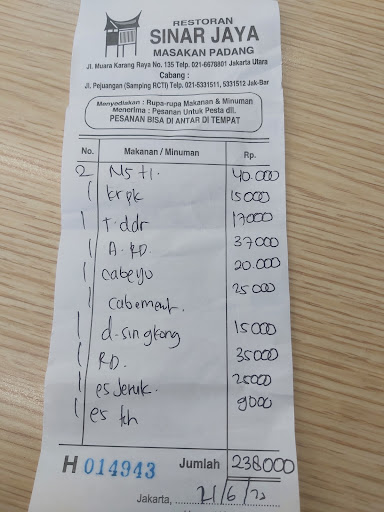 RESTORAN
SINAR JAYA
MASAKAN PADANG
Jl. Muara Karang Raya No. 135 Telp. 021-6678801 Jakarta Utara
Cabang :
Jl. Pejuangan (Samping RCTI) Telp. 021-5331511, 5331512 Jak-Bar
Menyediakan : Rupa-rupa Makanan & Minuman
Menerima : Pesanan Untuk Pesta dll.
PESANAN BISA DI ANTAR DI TEMPAT
No. Makanan / Minuman Rp.
2 40.000
1 krpk 15000
1 T. ddr 17000
1 A. RD. 37000
1 cabeyu 20.000
1 25000
1 d. singkong 15000
1 RD. 35000
1 es Jeruk. 25000
1 es 9000
H 014943 Jumlah 238000
Jakarta, 21/6/22